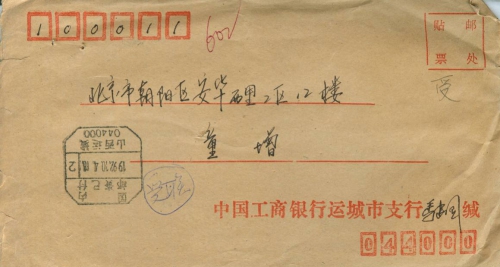 100011
600
贴邮
票处
北京市朝阳区安华西里二区12楼
童增
山西运城
044000
1992.10.4
2
国内
邮资已付
中国工商银行运城市支行 缄
044000